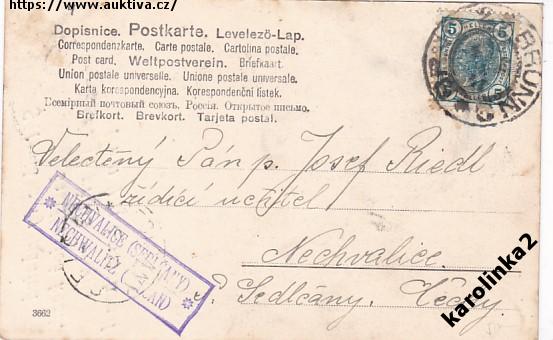 https://www.auktiva.cz/
Dopisnice. Postkarte. Levelező-Lap.
Correspondenzkarte. Carte postale. Cartolina postale.
Post card. Weltpostverein. Briefkaart.
Union postale universelle. Unione postale universale.
Karta korespondencyjna. Korespondenční lístek.
Всемірный почтовый союзъ. Россія. Открытое письмо.
Brefkort. Brevkort. Tarjeta postal.
5 5
5 5
BRÜNN
BRNO
Velectěný Pán p. Josef Riedl
řídící učitel
Nechvalice
p. Sedlčany. Čechy
NECHVALICE (SEDLČANY)
NECHWALITZ
3662
karolinka2